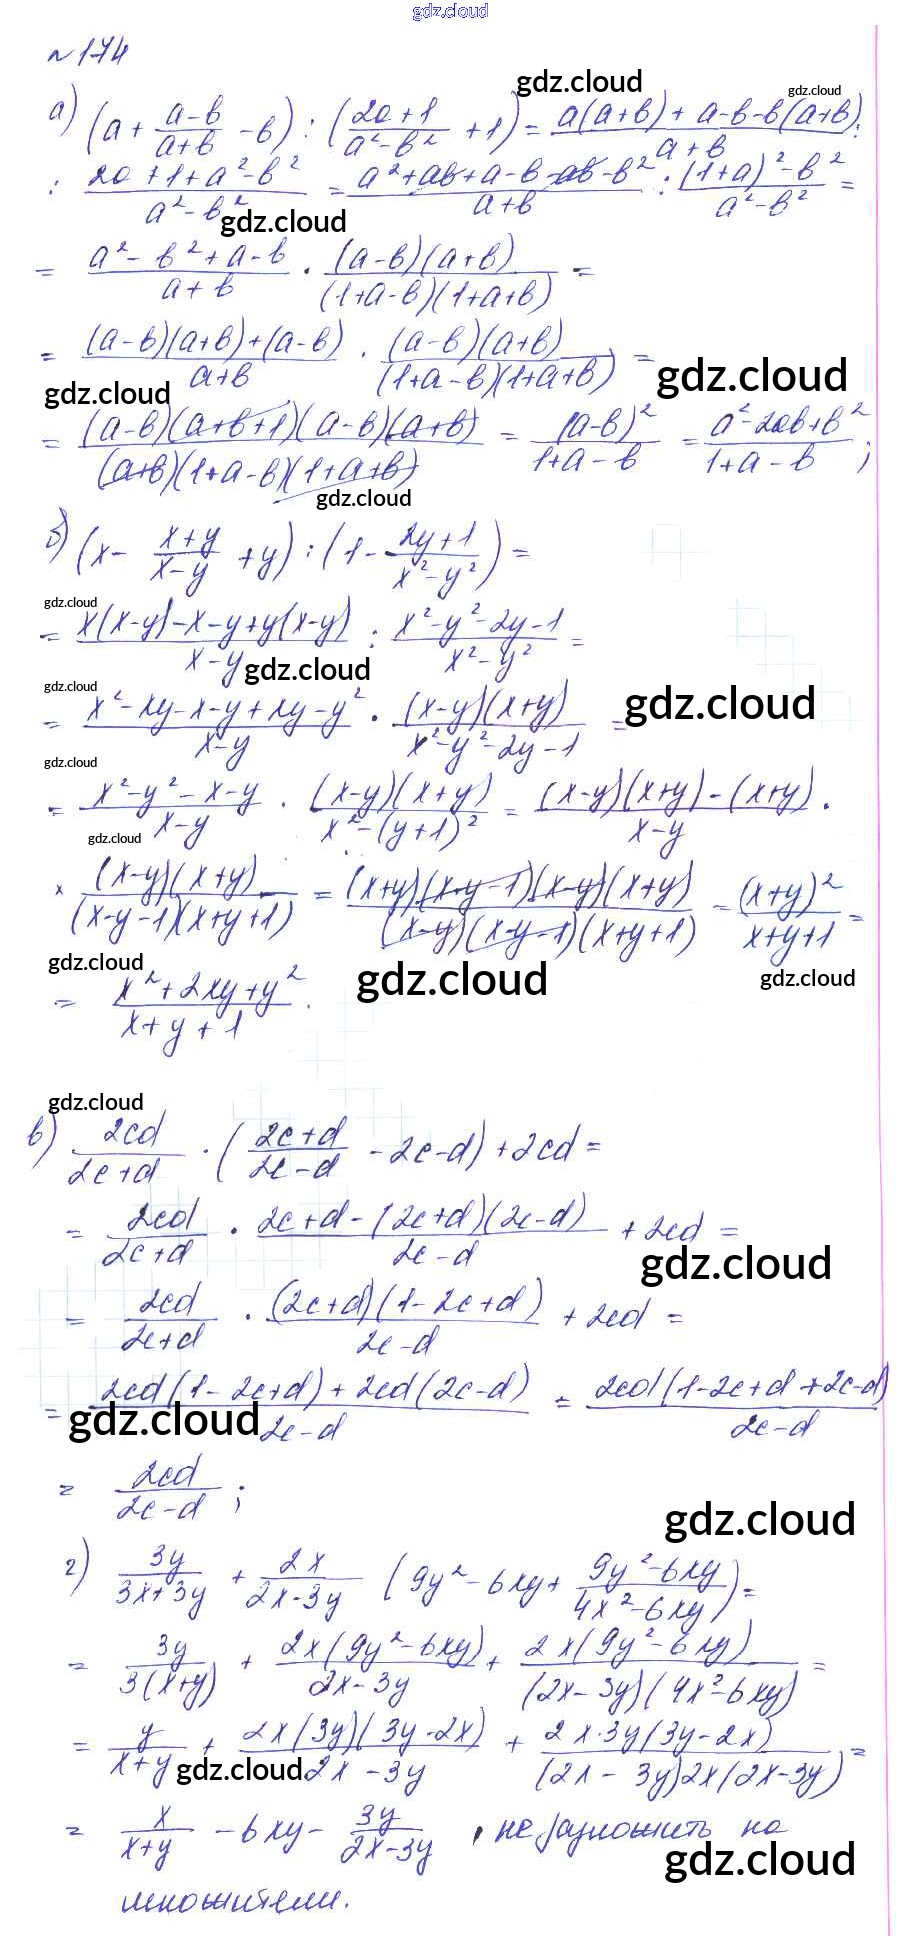 gdz.cloud
№ 174
gdz.cloud
gdz.cloud
а) (a + (a-b)/(a+b) - b) : ((2a+1)/(a²-b²) + 1) = (a(a+b) + a-b-b(a+b))/(a+b) :
: (2a+1+a²-b²)/(a²-b²) = (a²+ab+a-b-ab-b²)/(a+b) : ((1+a)²-b²)/(a²-b²) =
gdz.cloud
= (a²-b²+a-b)/(a+b) · ((a-b)(a+b))/((1+a-b)(1+a+b)) =
= ((a-b)(a+b)+(a-b))/(a+b) · ((a-b)(a+b))/((1+a-b)(1+a+b)) =
gdz.cloud
gdz.cloud
= ((a-b)(a+b+1)(a-b)(a+b))/((a+b)(1+a-b)(1+a+b)) = (a-b)²/(1+a-b) = (a²-2ab+b²)/(1+a-b) ;
gdz.cloud
б) (x - (x+y)/(x-y) + y) : (1 - (2y+1)/(x²-y²)) =
gdz.cloud
= (x(x-y)-x-y+y(x-y))/(x-y) : (x²-y²-2y-1)/(x²-y²) =
gdz.cloud
gdz.cloud
gdz.cloud
= (x²-xy-x-y+xy-y²)/(x-y) · ((x-y)(x+y))/(x²-y²-2y-1) =
gdz.cloud
= (x²-y²-x-y)/(x-y) · ((x-y)(x+y))/(x²-(y+1)²) = ((x-y)(x+y)-(x+y))/(x-y) ·
gdz.cloud
× ((x-y)(x+y))/((x-y-1)(x+y+1)) = ((x+y)(x-y-1)(x-y)(x+y))/((x-y)(x-y-1)(x+y+1)) = (x+y)²/(x+y+1) =
gdz.cloud
gdz.cloud
gdz.cloud
= (x²+2xy+y²)/(x+y+1) .
gdz.cloud
в) 2cd/(2c+d) · ((2c+d)/(2c-d) - 2c-d) + 2cd =
= 2cd/(2c+d) · (2c+d-(2c+d)(2c-d))/(2c-d) + 2cd =
gdz.cloud
= 2cd/(2c+d) · ((2c+d)(1-2c+d))/(2c-d) + 2cd =
= (2cd(1-2c+d)+2cd(2c-d))/(2c-d) = (2cd(1-2c+d+2c-d))/(2c-d)
gdz.cloud
= 2cd/(2c-d) ;
gdz.cloud
г) 3y/(3x+3y) + 2x/(2x-3y) (9y²-6xy+ (9y²-6xy)/(4x²-6xy)) =
= 3y/(3(x+y)) + (2x(9y²-6xy))/(2x-3y) + (2x(9y²-6xy))/((2x-3y)(4x²-6xy)) =
= y/(x+y) + (2x(3y)(3y-2x))/(2x-3y) + (2x·3y(3y-2x))/((2x-3y)2x(2x-3y)) =
gdz.cloud
= x/(x+y) - 6xy - 3y/(2x-3y) , не разложить на
gdz.cloud
множители.